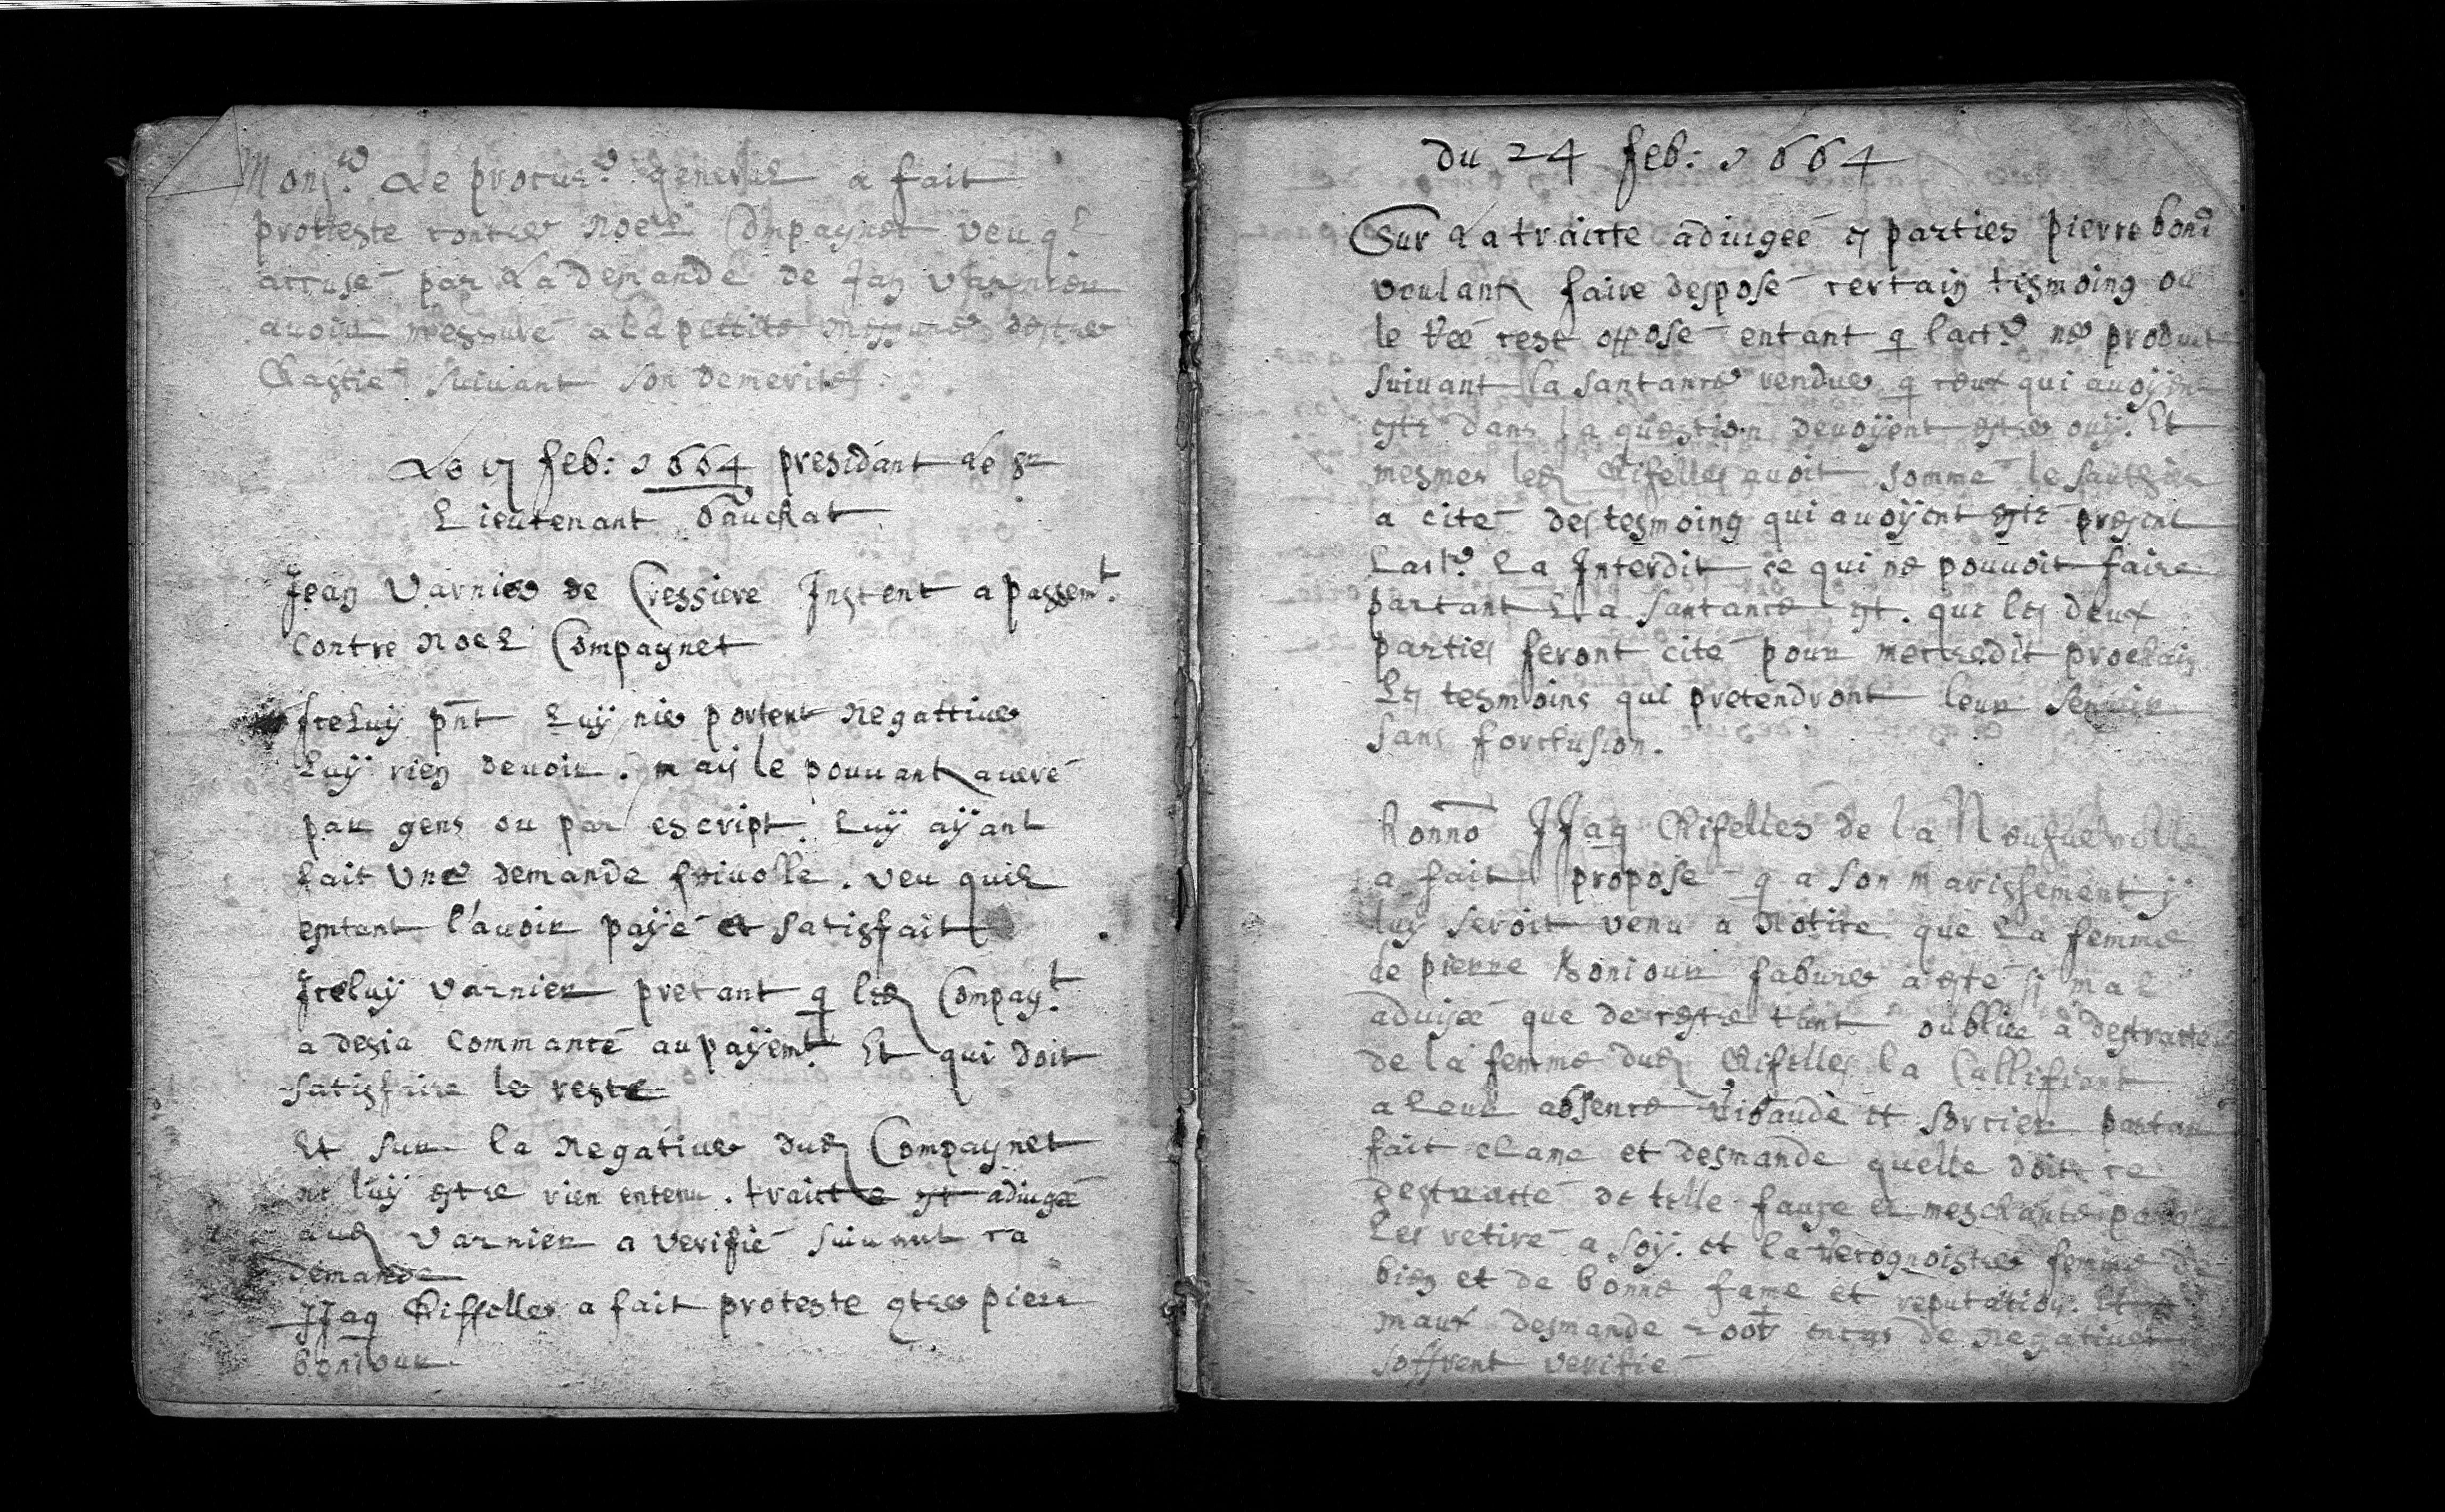 Monsr. Le procurr. general a fait
proteste contre Noel Compagnet veu ql
accuse par La demande de Jan Varnier
auoir messuré a la pettite messure destre
Chastié suiuant son demerite
Le 17 feb: 1664 presidant Le sr
Lieutenant Bauchat
Jean Varnier de Cressiere Instent a passemt.
Contre Noel Compagnet
Iceluy pnt Luÿ nie portent Negattiue
Luÿ rien deuoir. mais le pouuant aueré
par gens ou par escript. Luÿ aÿant
fait Vne demande friuolle. veu quil
entant l'auoir paÿé et satisfait
Iceluÿ Varnier pretant q led Compagt.
a desia Commancé au paÿemt. Et qui doit
satisfaire le reste
Et sur la Negatiue dud Compagnet
ne luÿ estre rien entenu. traitte est adiugée
aud Varnier a verifié suiuant ca
demande
JJaq Chiffelles a fait proteste gtre piere
boniour
du 24 feb: 1664
Sur La traitte adiugée es parties pierre bonr
voulant faire desposé certain tesmoing ou
le rée cest opposé entant q lactr ne produit
suiuant la santance rendue q ceux qui auoÿent
esté dans la question deuoÿent estre ouÿ. Et
mesmes led Chifelles auoit sommé le sautier
a cité des tesmoing qui auoÿent esté present
Lactr. La Interdit ce qui ne pouuoit faire
partant La santance est. que les deux
parties feront cité pour mercredit prochain
Les tesmoins qui pretendront leur seruir
sans forclusion.
honno JJaq Chifelles de la Neufueuille
a fait proposé q a son marissement ÿ
luÿ seroit venu a Notice que La femme
de pierre Boniour fabure a esté si mal
aduisée que de cestre tant oubliee a destratter
de la femme dud Chifelles la Callifiant
a Leur absence ribaude et sorciere partant
fait clame et desmande quelle doit ce
destratté de telle fauce et meschante parolle
Les retiré a soÿ. et la recognoistre femme de
bien et de bonne fame et reputation. Et
maux desmande 200t encas de Negatiue
soffrent verifié